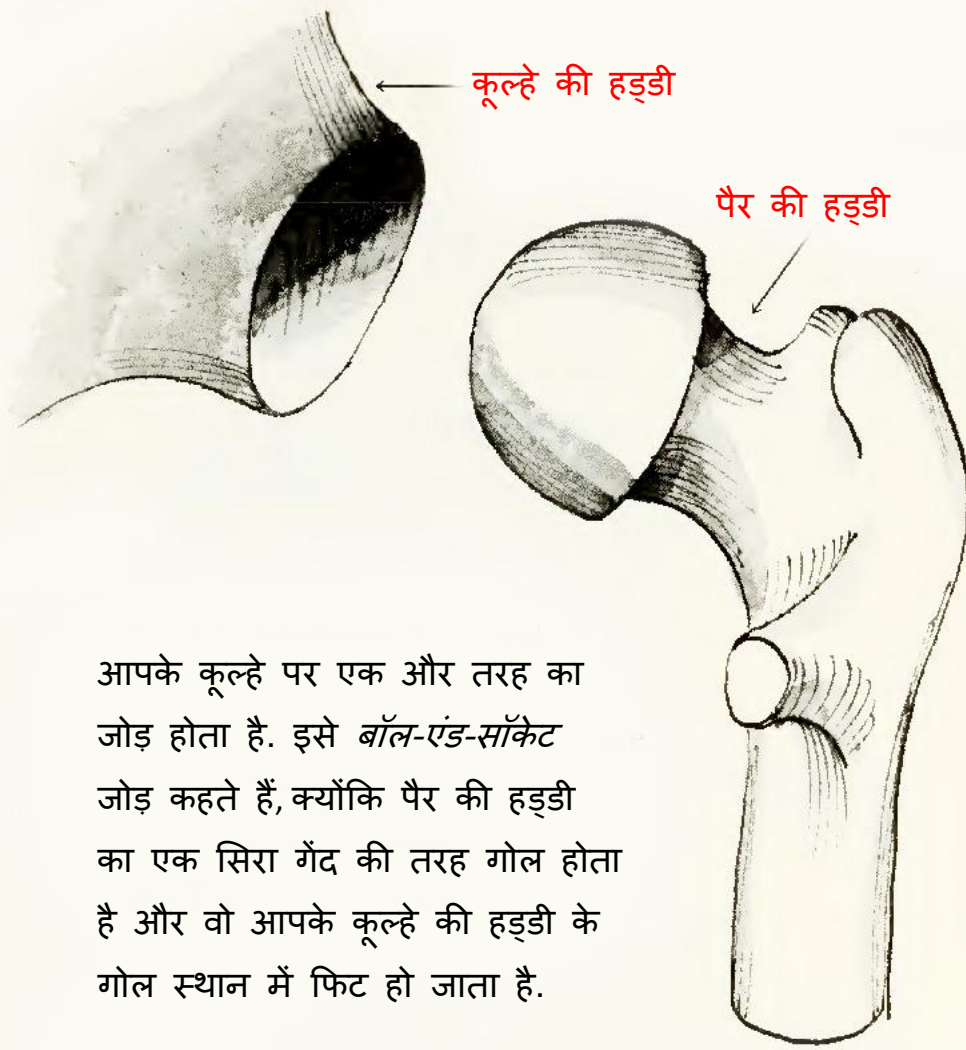 कूल्हे की हड्डी
पैर की हड्डी
आपके कूल्हे पर एक और तरह का
जोड़ होता है. इसे बॉल-एंड-सॉकेट
जोड़ कहते हैं, क्योंकि पैर की हड्डी
का एक सिरा गेंद की तरह गोल होता
है और वो आपके कूल्हे की हड्डी के
गोल स्थान में फिट हो जाता है.